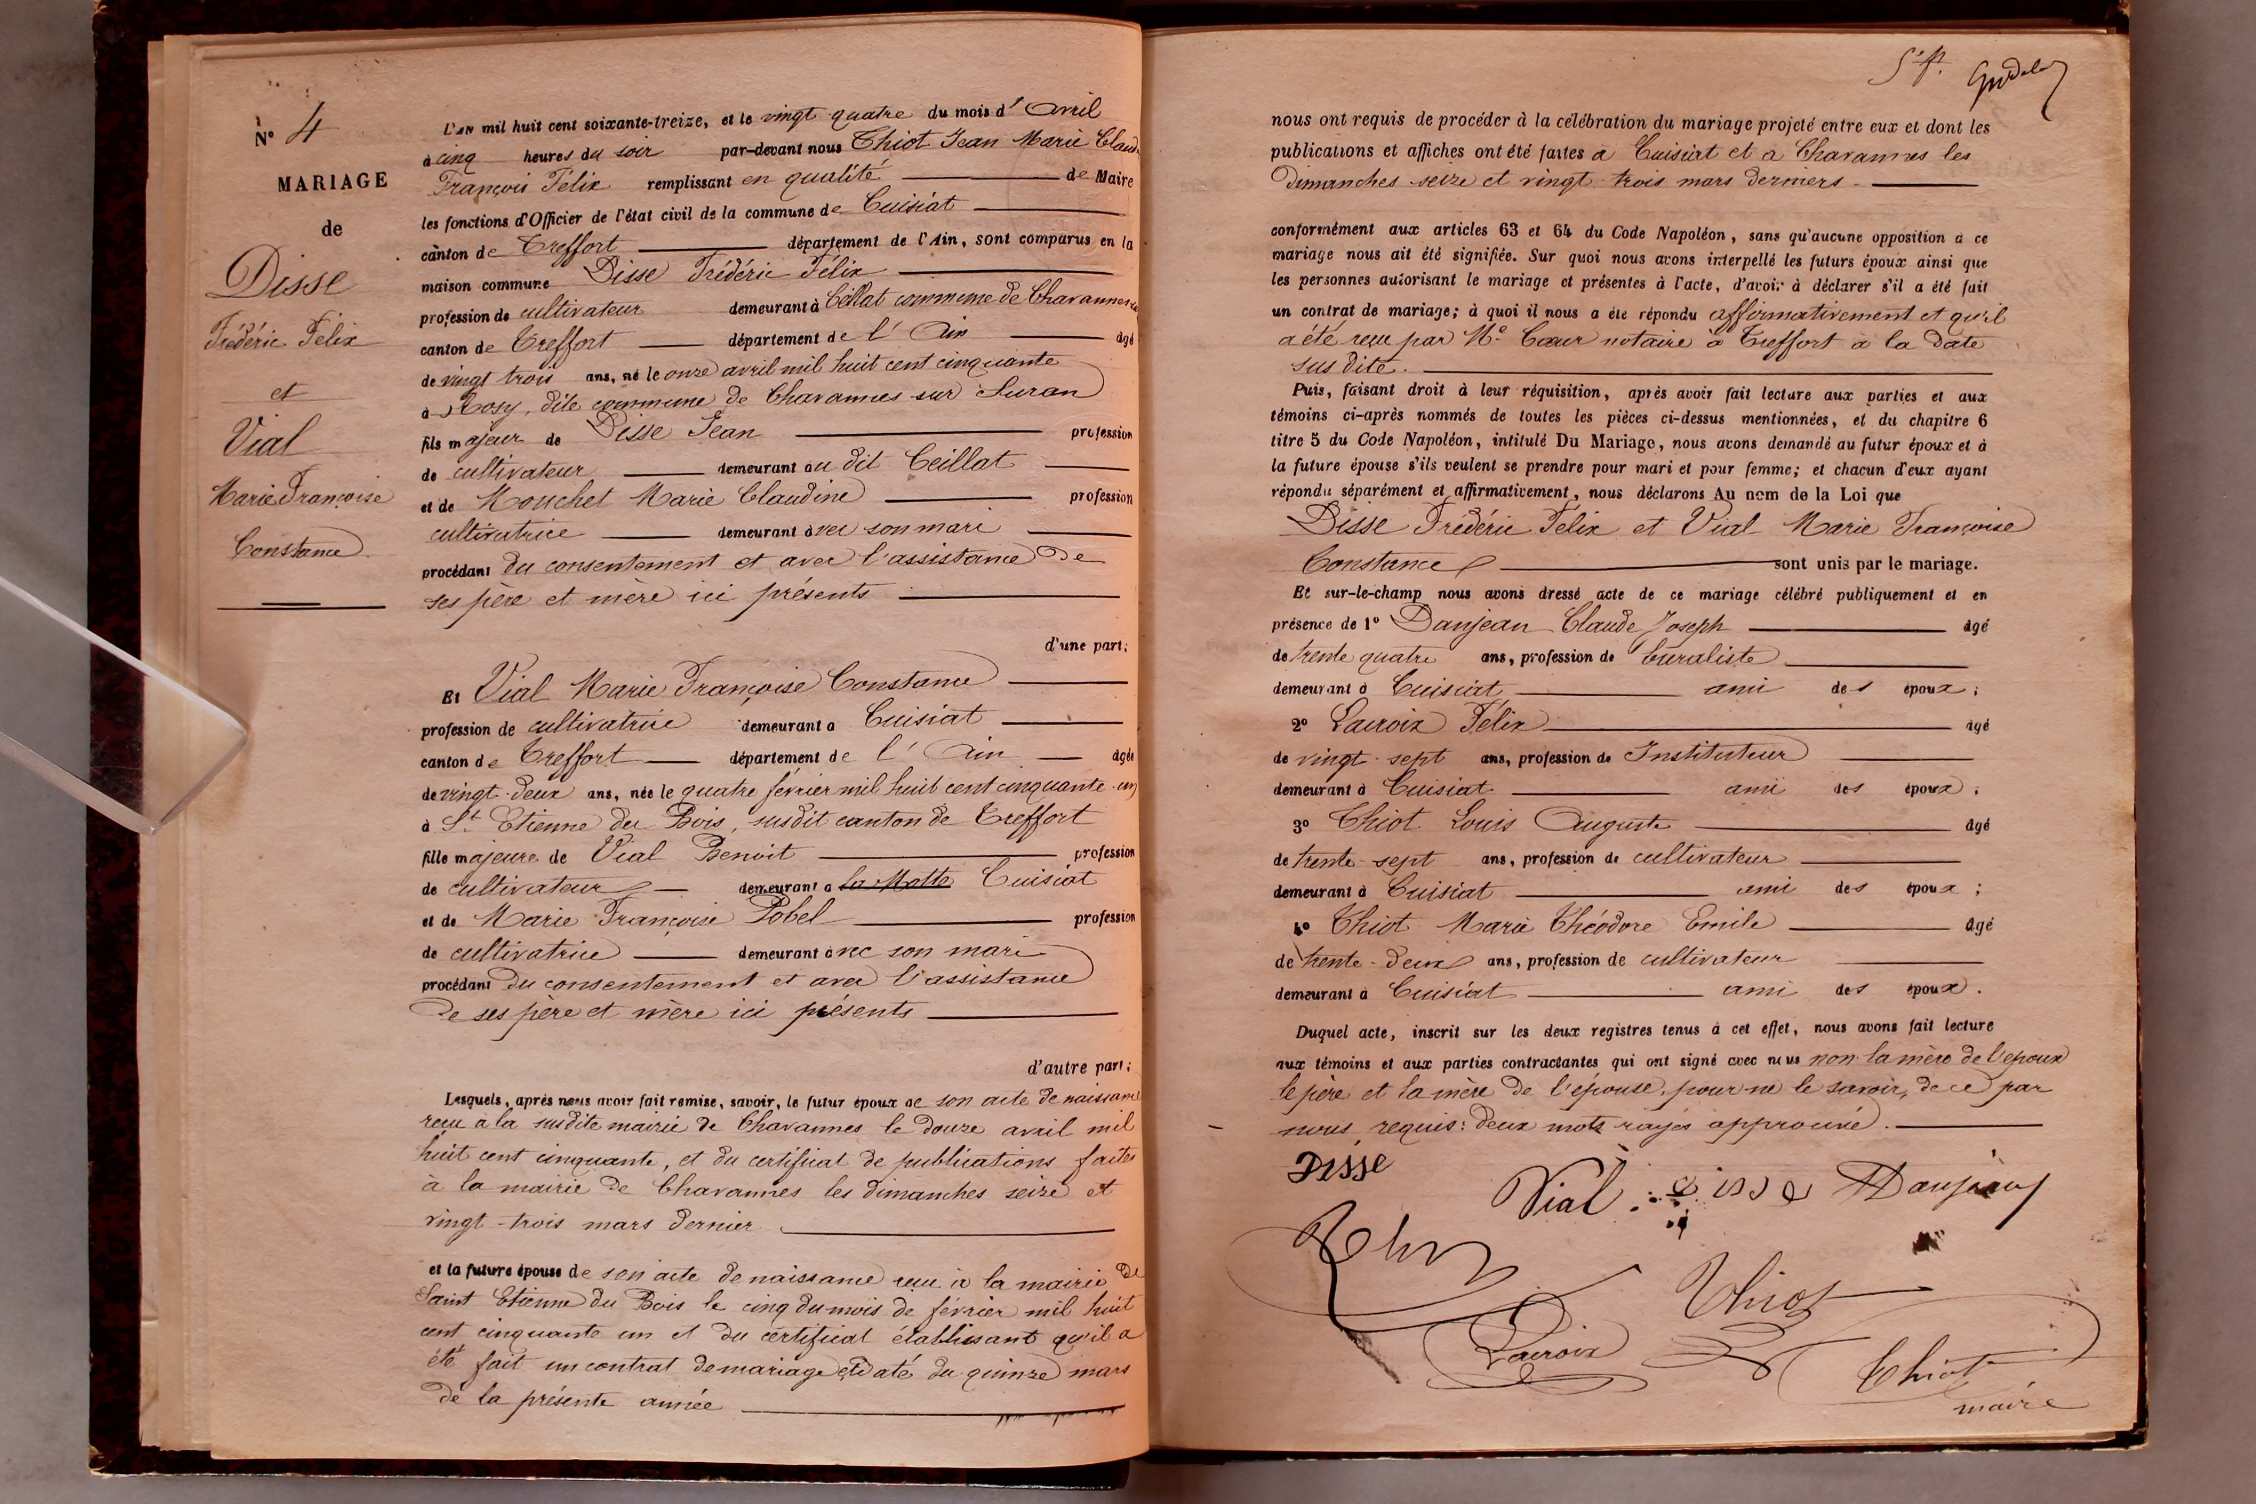 N° 4
MARIAGE
de
Disse
Frédéric Félix
et
Vial
Marie Françoise
Constance
L'AN mil huit cent soixante-treize, et le vingt quatre du mois d'Avril
à cinq heures du soir par-devant nous Thiot Jean Marie Claude
François Félix remplissant en qualité de Maire
les fonctions d'Officier de l'état civil de la commune de Cuisiat
canton de Treffort département de l'Ain, sont comparus en la
maison commune Disse Frédéric Félix
profession de cultivateur demeurant à Ceillat commune de Chavannes
canton de Treffort département de l'Ain âgé
de vingt trois ans, né le onze avril mil huit cent cinquante
à Rosy, dite commune de Chavannes sur Suran
fils majeur de Disse Jean profession
de cultivateur demeurant au dit Ceillat
et de Mouchet Marie Claudine profession
cultivatrice demeurant avec son mari
procédant du consentement et avec l'assistance de
ses père et mère ici présents
d'une part;
Et Vial Marie Françoise Constance
profession de cultivatrice demeurant à Cuisiat
canton de Treffort département de l'Ain âgée
de vingt-deux ans, née le quatre février mil huit cent cinquante-un
à St Etienne du Bois, susdit canton de Treffort
fille majeure de Vial Benoit profession
de cultivateur demeurant à la Motte Cuisiat
et de Marie Françoise Pobel profession
de cultivatrice demeurant avec son mari
procédant du consentement et avec l'assistance
de ses père et mère ici présents
d'autre part;
Lesquels, après nous avoir fait remise, savoir, le futur époux de son acte de naissance
reçu à la susdite mairie de Chavannes le douze avril mil
huit cent cinquante, et du certificat de publications faites
à la mairie de Chavannes les dimanches seize et
vingt-trois mars dernier
et la future épouse de son acte de naissance reçu à la mairie de
Saint Etienne du Bois le cinq du mois de février mil huit
cent cinquante un et du certificat établissant qu'il a
été fait un contrat de mariage daté du quinze mars
de la présente année
nous ont requis de procéder à la célébration du mariage projeté entre eux et dont les
publications et affiches ont été faites à Cuisiat et à Chavannes les
Dimanches seize et vingt-trois mars derniers
conformément aux articles 63 et 64 du Code Napoléon, sans qu'aucune opposition à ce
mariage nous ait été signifiée. Sur quoi nous avons interpellé les futurs époux ainsi que
les personnes autorisant le mariage et présentes à l'acte, d'avoir à déclarer s'il a été fait
un contrat de mariage; à quoi il nous a été répondu affirmativement et qu'il
a été reçu par Me Cœur notaire à Treffort à la date
sus dite.
Puis, faisant droit à leur réquisition, après avoir fait lecture aux parties et aux
témoins ci-après nommés de toutes les pièces ci-dessus mentionnées, et du chapitre 6
titre 5 du Code Napoléon, intitulé Du Mariage, nous avons demandé au futur époux et à
la future épouse s'ils veulent se prendre pour mari et pour femme; et chacun d'eux ayant
répondu séparément et affirmativement, nous déclarons Au nom de la Loi que
Disse Frédéric Félix et Vial Marie Françoise
Constance sont unis par le mariage.
Et sur-le-champ nous avons dressé acte de ce mariage célébré publiquement et en
présence de 1° Danjean Claude Joseph âgé
de trente quatre ans, profession de buraliste
demeurant à Cuisiat ami des époux;
2° Lacroix Félix âgé
de vingt-sept ans, profession de Instituteur
demeurant à Cuisiat ami des époux;
3° Thiot Louis Auguste âgé
de trente-sept ans, profession de cultivateur
demeurant à Cuisiat ami des époux;
4° Thiot Marie Théodore Emile âgé
de trente-deux ans, profession de cultivateur
demeurant à Cuisiat ami des époux.
Duquel acte, inscrit sur les deux registres tenus à cet effet, nous avons fait lecture
aux témoins et aux parties contractantes qui ont signé avec nous non la mère de l'époux
le père et la mère de l'épouse, pour ne le savoir, de ce par
nous requis: deux mots rayés approuvé.
Disse Vial Disse Danjean
Thiot
Lacroix
Thiot
maire